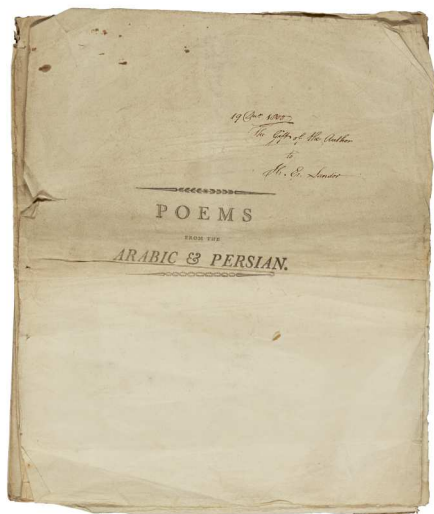 19
The Gift of the Author
to
Landor
POEMS
FROM THE
ARABIC & PERSIAN.